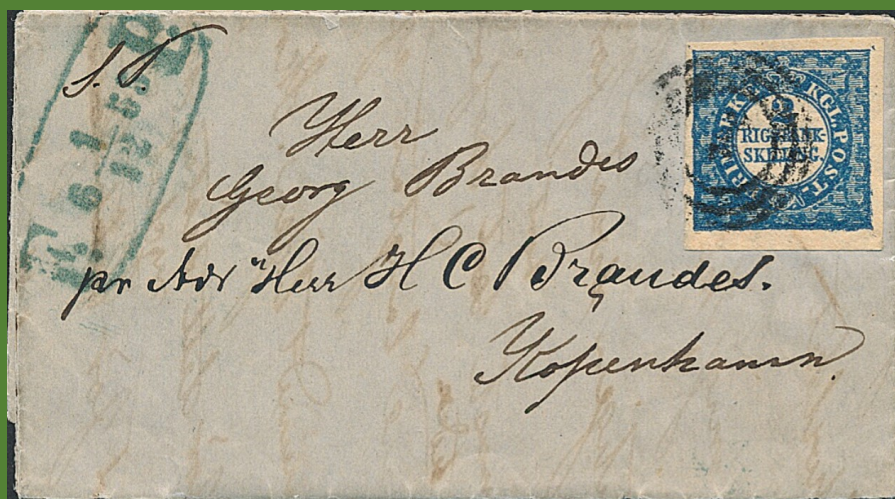 S. T.
Herr
Georg Brandes
pr Adr Herr H C Brandes.
Kopenhamn.
KGL. POST. FRIMÆRKE
2
RIGSBANK-
SKILLING.
6 1/12 5